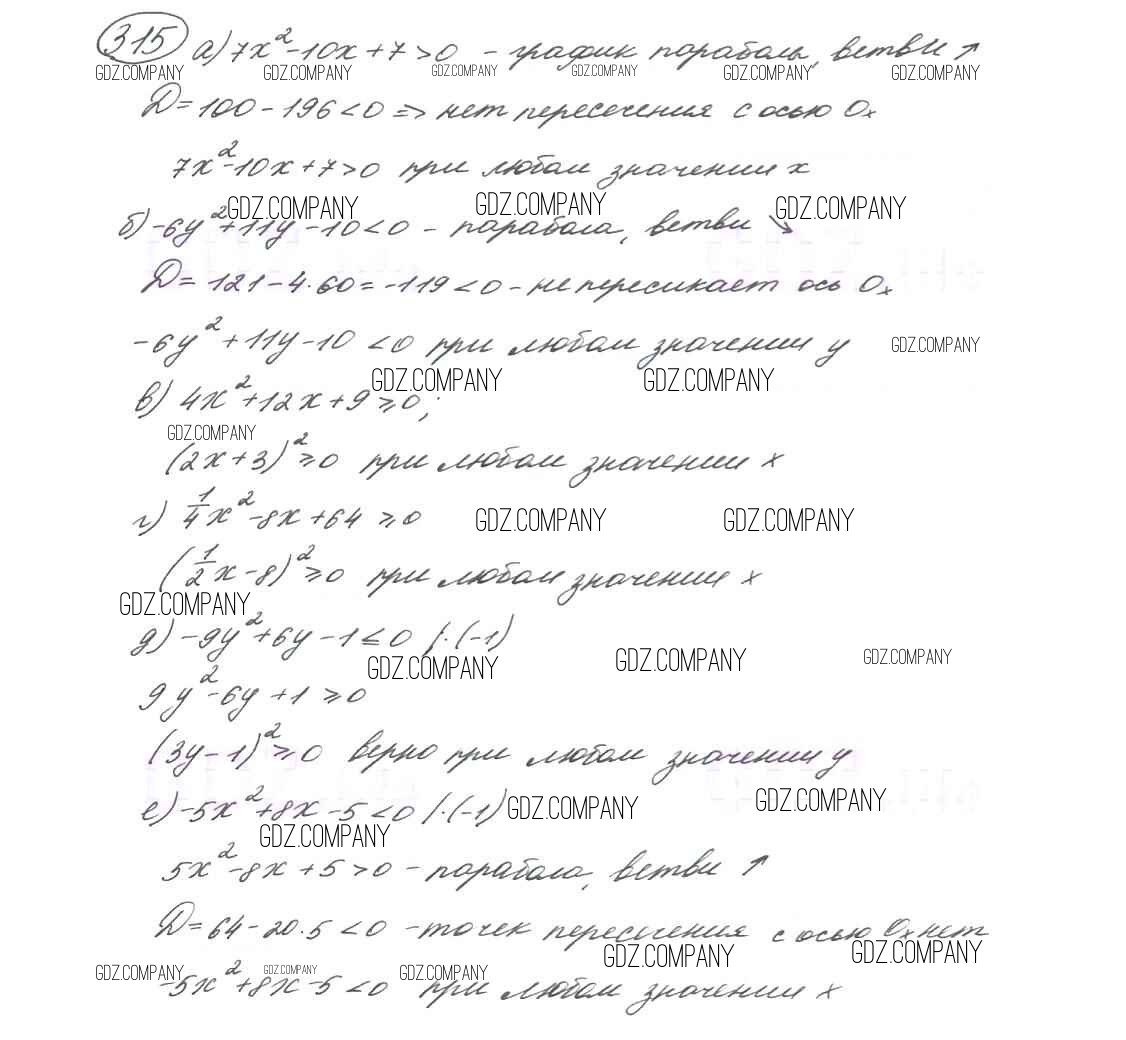 315 а) 7x²-10x+7>0 - график параболы, ветви ↑
GDZ.COMPANY GDZ.COMPANY GDZ.COMPANY GDZ.COMPANY GDZ.COMPANY GDZ.COMPANY
D=100-196<0 => нет пересечения с осью Ox
7x²-10x+7>0 при любом значении x
GDZ.COMPANY GDZ.COMPANY GDZ.COMPANY
б) -6y²+11y-10<0 - парабола, ветви ↘
D=121-4·60=-119<0 - не пересикает ось Ox
-6y²+11y-10<0 при любом значении y GDZ.COMPANY
GDZ.COMPANY GDZ.COMPANY
в) 4x²+12x+9≥0;
GDZ.COMPANY
(2x+3)²≥0 при любом значении x
г) 1/4x²-8x+64≥0 GDZ.COMPANY GDZ.COMPANY
(1/2x-8)²≥0 при любом значении x
GDZ.COMPANY
д) -9y²+6y-1≤0 /·(-1)
GDZ.COMPANY GDZ.COMPANY GDZ.COMPANY
9y²-6y+1≥0
(3y-1)²≥0 верно при любом значении y
е) -5x²+8x-5<0 /·(-1) GDZ.COMPANY GDZ.COMPANY
GDZ.COMPANY
5x²-8x+5>0 - парабола, ветви ↑
D=64-20·5<0 - точек пересечения с осью Ox нет
GDZ.COMPANY GDZ.COMPANY
GDZ.COMPANY GDZ.COMPANY GDZ.COMPANY
-5x²+8x-5<0 при любом значении x